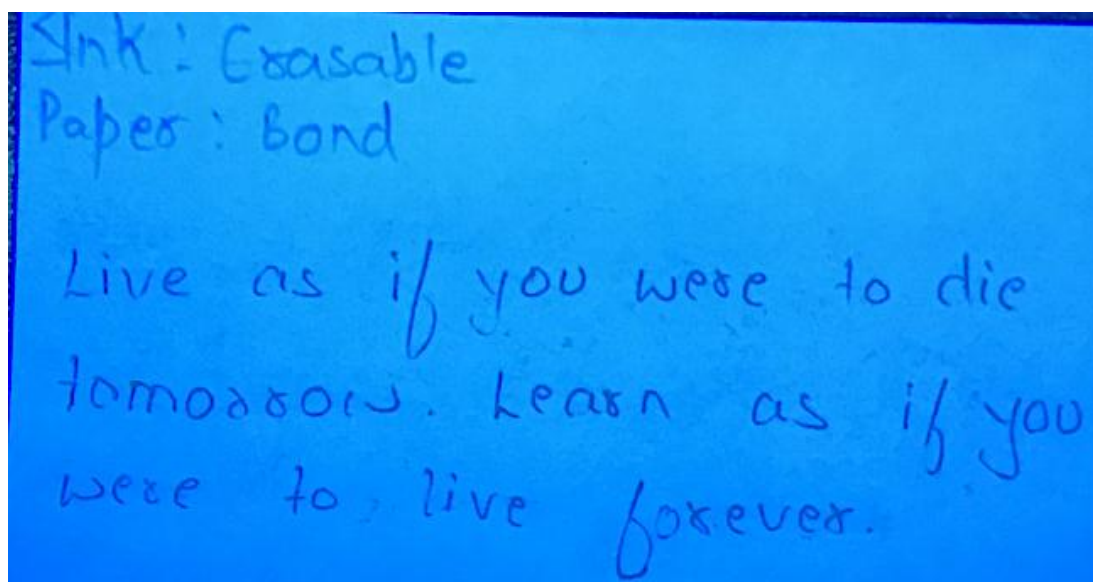 Ink: Erasable
Paper: Bond
Live as if you were to die
tomorrow. Learn as if you
were to live forever.